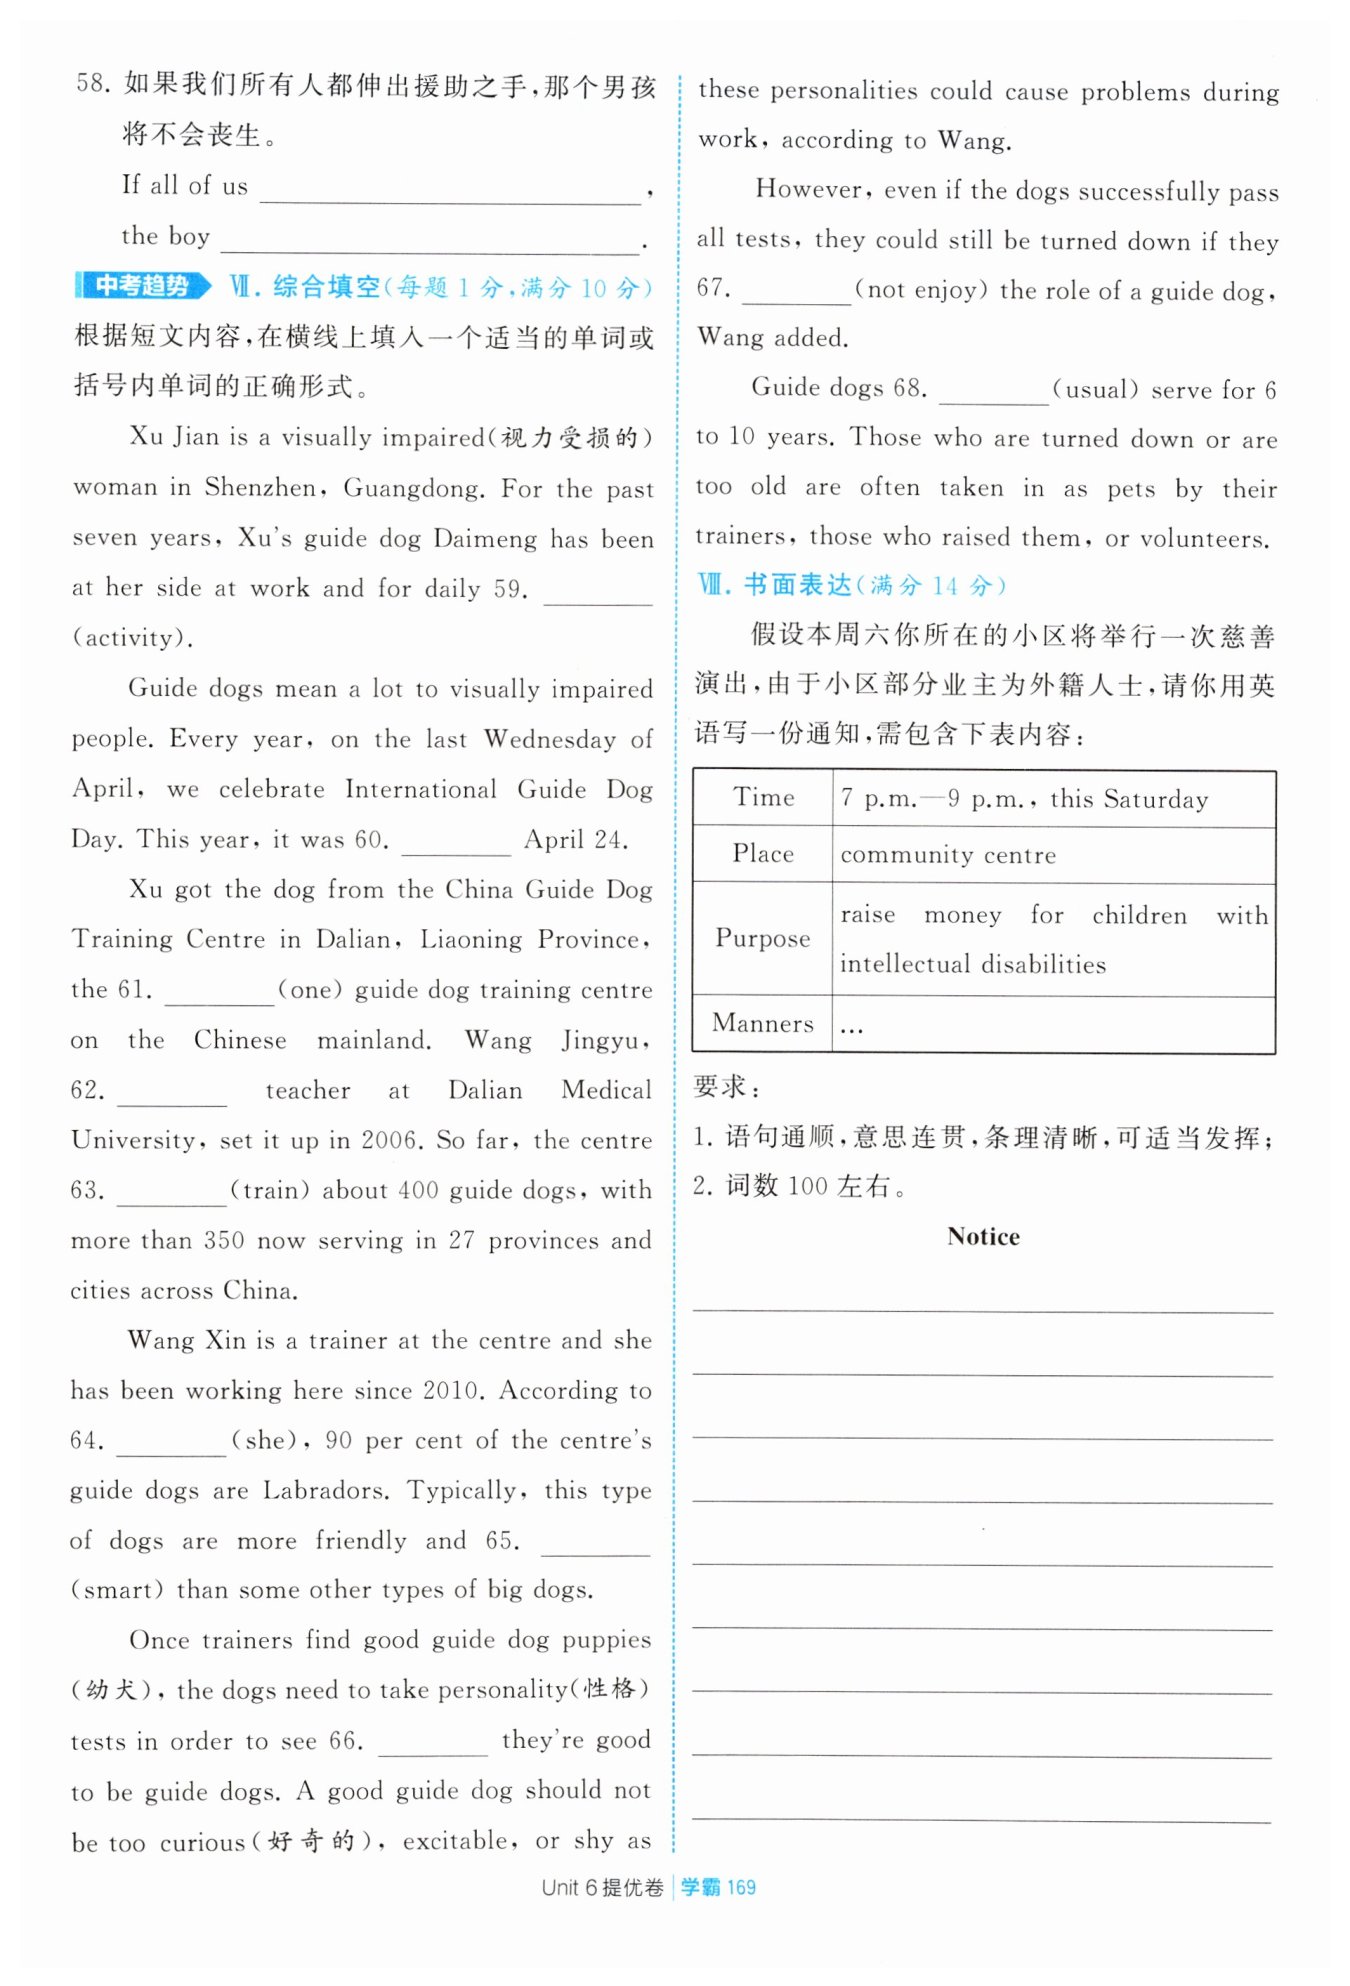 58. 如果我们所有人都伸出援助之手,那个男孩
将不会丧生。
If all of us ____________,
the boy ____________.
中考趋势 Ⅶ. 综合填空(每题 1 分,满分 10 分)
根据短文内容,在横线上填入一个适当的单词或
括号内单词的正确形式。
Xu Jian is a visually impaired(视力受损的)
woman in Shenzhen, Guangdong. For the past
seven years, Xu's guide dog Daimeng has been
at her side at work and for daily 59. ________
(activity).
Guide dogs mean a lot to visually impaired
people. Every year, on the last Wednesday of
April, we celebrate International Guide Dog
Day. This year, it was 60. ________ April 24.
Xu got the dog from the China Guide Dog
Training Centre in Dalian, Liaoning Province,
the 61. ________(one) guide dog training centre
on the Chinese mainland. Wang Jingyu,
62. ________ teacher at Dalian Medical
University, set it up in 2006. So far, the centre
63. ________(train) about 400 guide dogs, with
more than 350 now serving in 27 provinces and
cities across China.
Wang Xin is a trainer at the centre and she
has been working here since 2010. According to
64. ________(she), 90 per cent of the centre's
guide dogs are Labradors. Typically, this type
of dogs are more friendly and 65. ________
(smart) than some other types of big dogs.
Once trainers find good guide dog puppies
(幼犬), the dogs need to take personality(性格)
tests in order to see 66. ________ they're good
to be guide dogs. A good guide dog should not
be too curious(好奇的), excitable, or shy as
these personalities could cause problems during
work, according to Wang.
However, even if the dogs successfully pass
all tests, they could still be turned down if they
67. ________(not enjoy) the role of a guide dog,
Wang added.
Guide dogs 68. ________(usual) serve for 6
to 10 years. Those who are turned down or are
too old are often taken in as pets by their
trainers, those who raised them, or volunteers.
Ⅷ. 书面表达(满分 14 分)
假设本周六你所在的小区将举行一次慈善
演出,由于小区部分业主为外籍人士,请你用英
语写一份通知,需包含下表内容:
Time 7 p.m.—9 p.m., this Saturday
Place community centre
Purpose raise money for children with
intellectual disabilities
Manners ...
要求:
1. 语句通顺,意思连贯,条理清晰,可适当发挥;
2. 词数 100 左右。
Notice
Unit 6提优卷 学霸 169